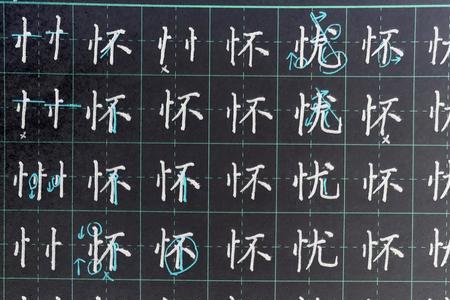 忄忄怀忄忄怀忧怀
忄忄怀怀怀忧怀
忄忄怀怀怀忧怀
忄忄怀怀怀忧怀